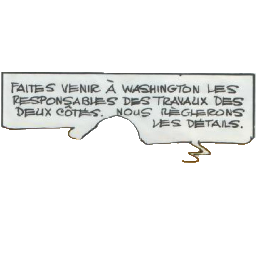 FAITES VENIR À WASHINGTON LES
RESPONSABLES DES TRAVAUX DES
DEUX CÔTÉS. NOUS RÈGLERONS
LES DÉTAILS.